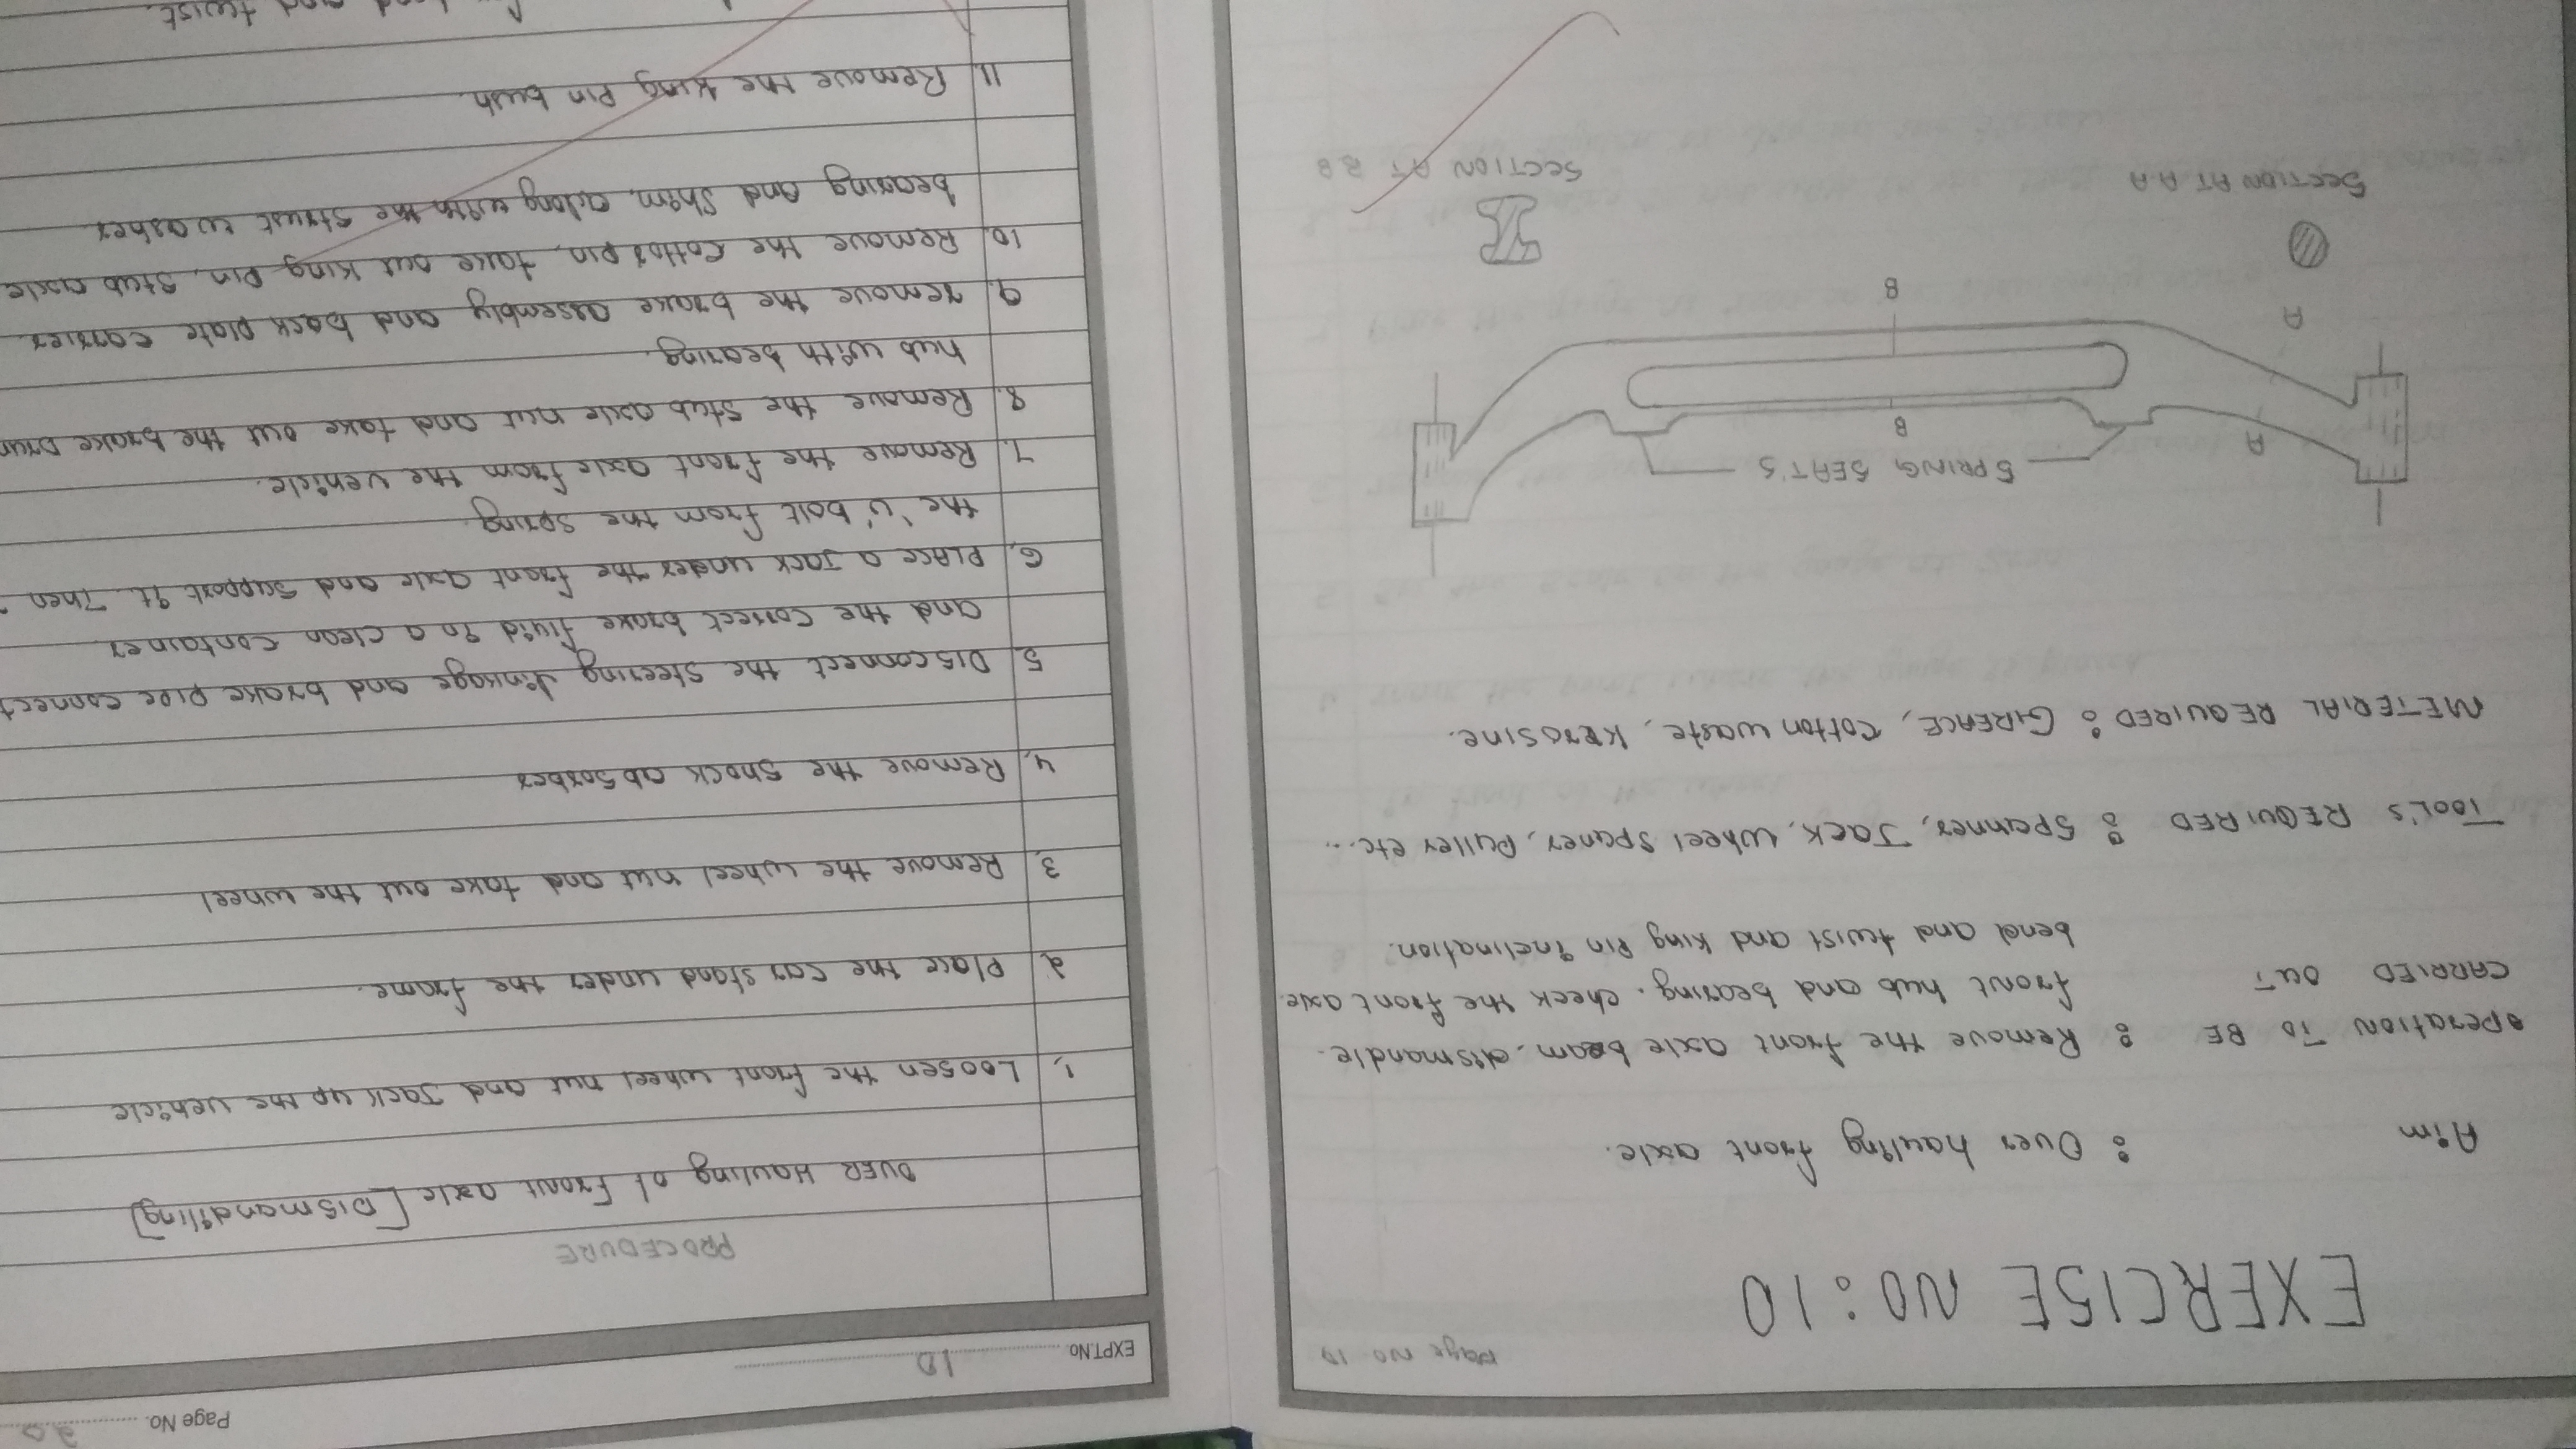 Page No 19
EXERCISE NO: 10
Aim : Over hauling front axle.
OPERATION TO BE : Remove the front axle beam, dismandle.
CARRIED OUT front hub and bearing. check the front axle
bend and twist and king Pin inclination.
TOOL'S REQUIRED : Spanner, Jack, wheel spaner, Puller etc...
METERIAL REQUIRED : GIREACE, Cotton waste, Kerosine.
SPRING SEAT'S
A
B
A
B
SECTION AT A A
SECTION AT B B
Page No. 20
EXPT.NO. 10
PROCEDURE
OVER Hauling of Front axle [Dismandling]
1, Loosen the front wheel nut and Jack up the vehicle
2. Place the car stand under the frame.
3, Remove the wheel nut and take out the wheel
4, Remove the Shock absorber
5, DISconnect the Steering linkage and brake pipe connect
and the correct brake fluid in a clean container.
6, PLACE a Jack under the front axle and Support it. Then
the 'U' bolt from the spring.
7. Remove the front axle from the vehicle.
8. Remove the Stub axle nut and take out the brake Drum
hub with bearing.
9. remove the brake assembly and back plate carrier.
10. Remove the Cottor pin, take out king Pin, Stub axle
bearing and Shim, along with the Strust washer
11. Remove the King Pin bush.
bend and twist.